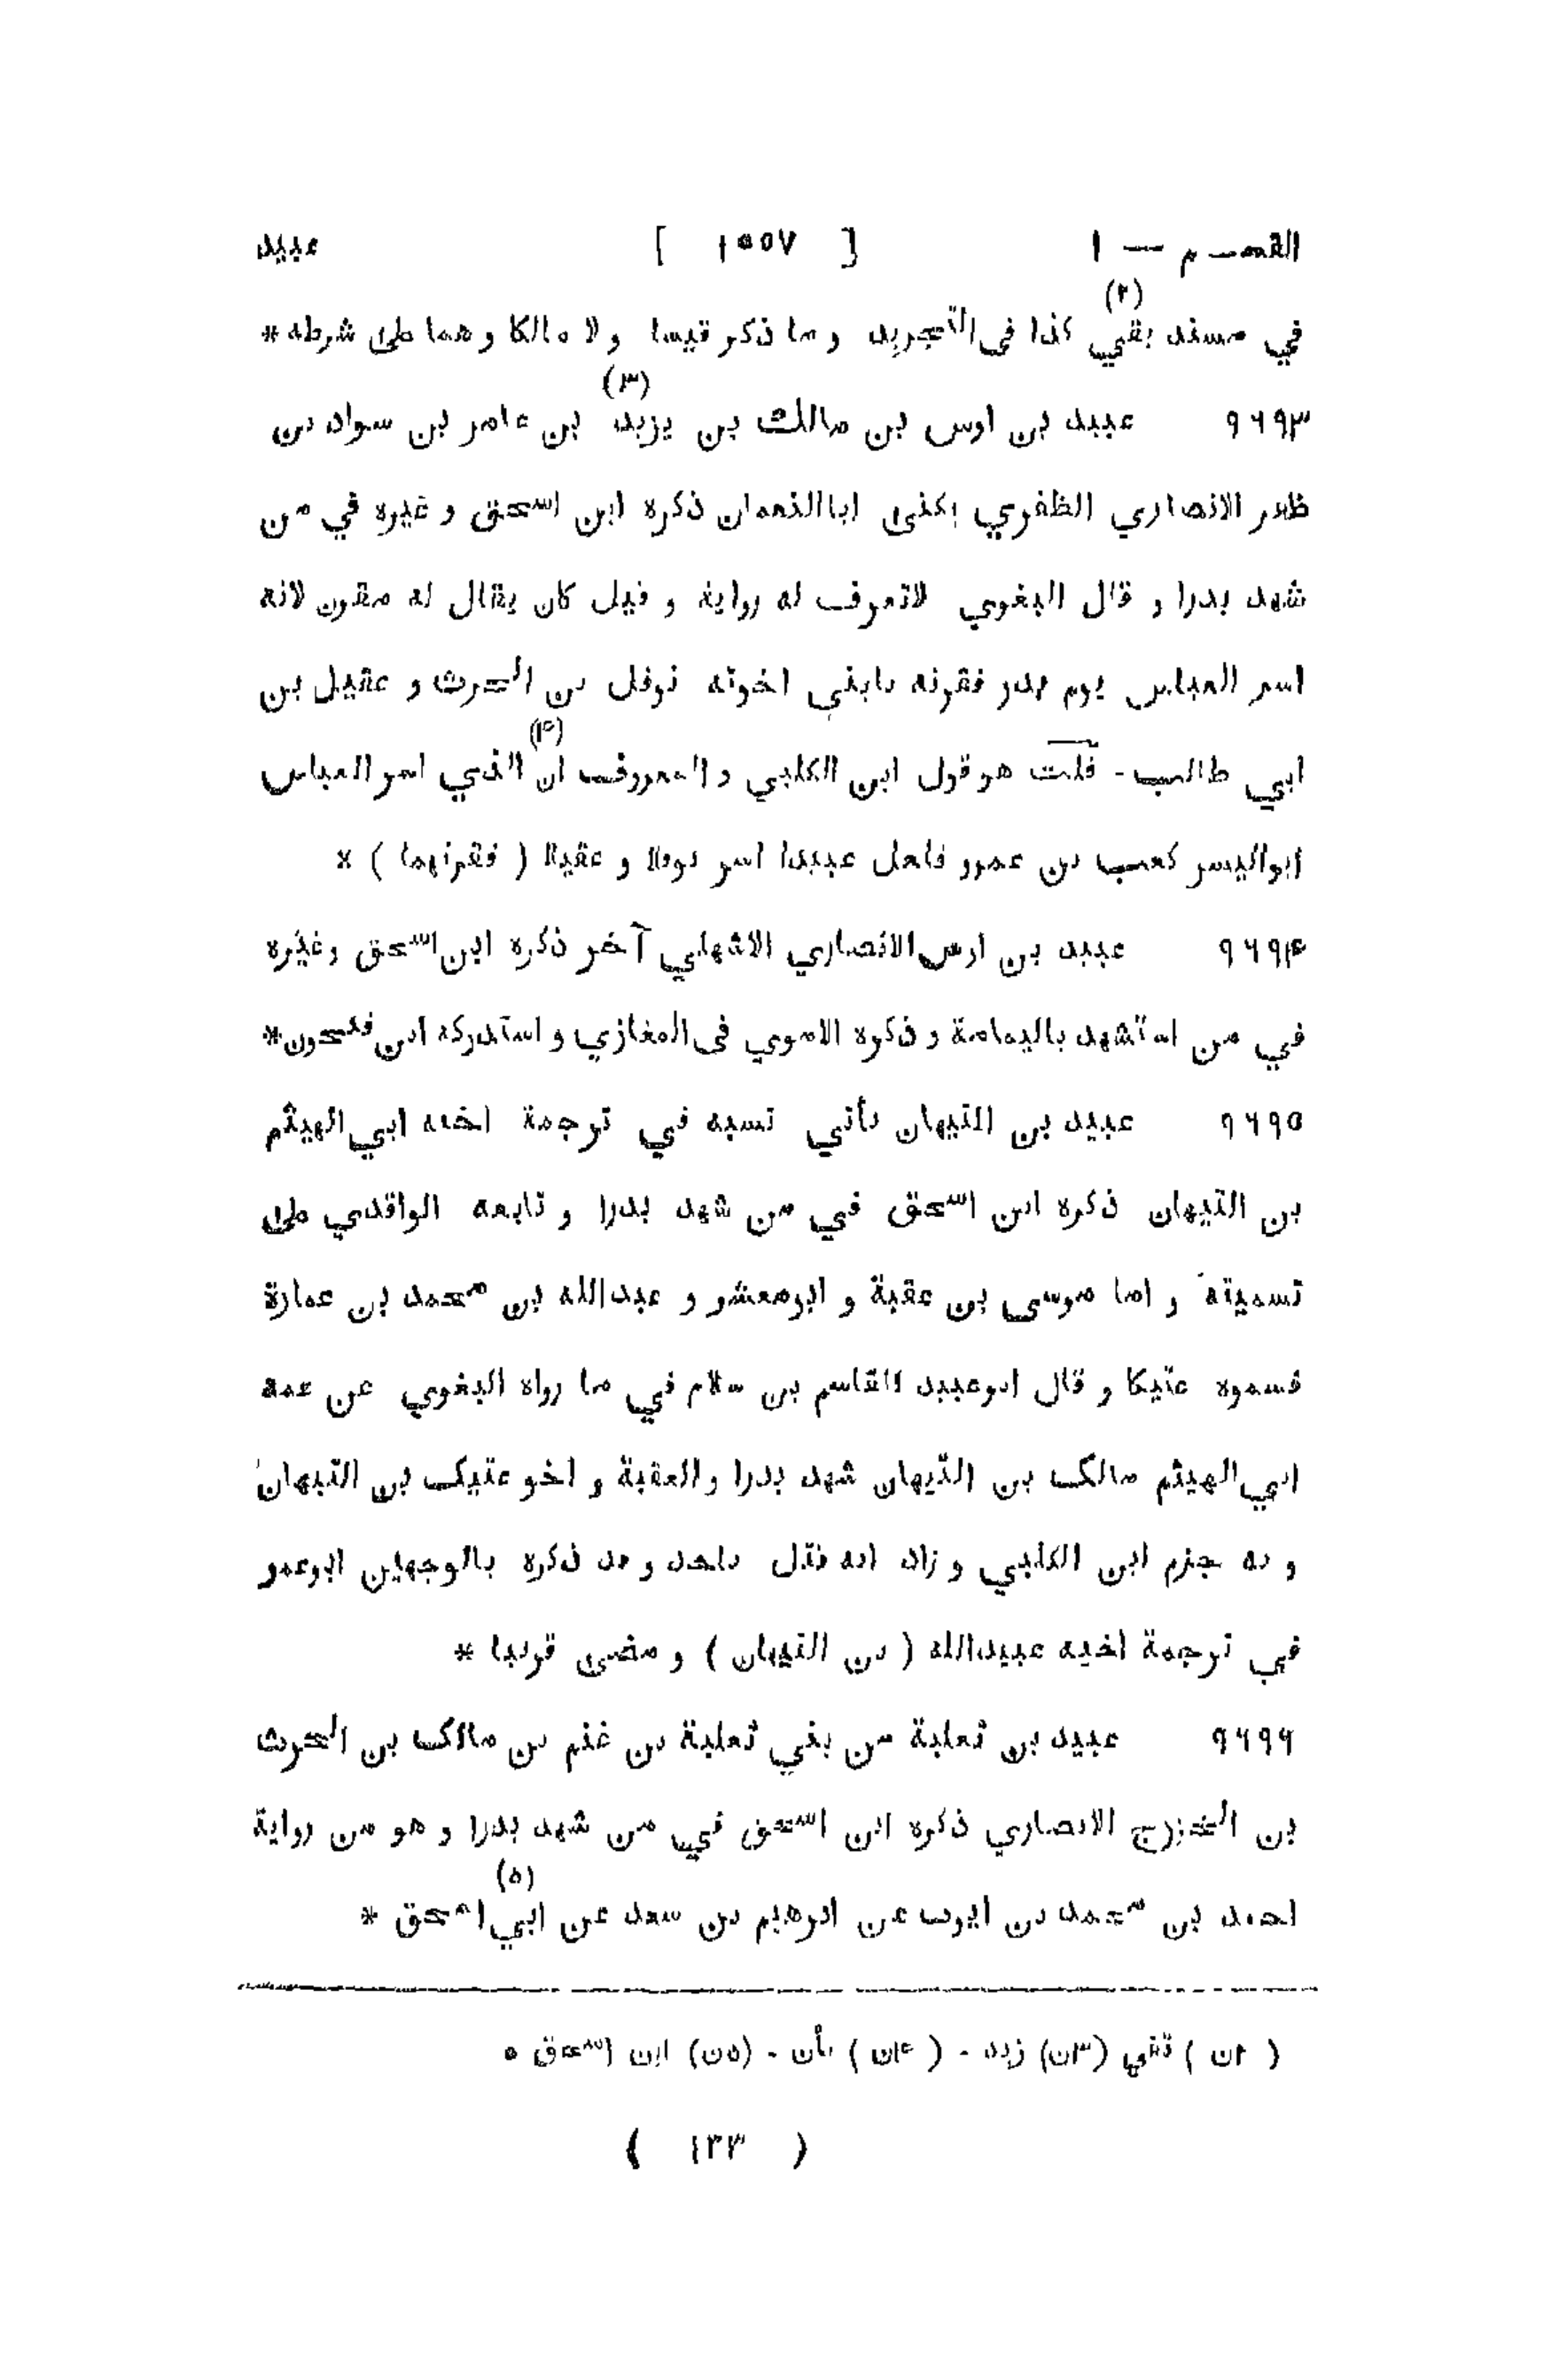 القسم — ١ [ ١٥٥٧ ] عبيد
(٢)
في مسند بقي كذا فى التجريد و ما ذكر قيسا ولا مالكا و هما على شرطه *
(٣)
٩٦٩٣ عبيد بن اوس بن مالك بن يزيد بن عامر بن سواد بن
ظفر الانصاري الظفري يكنى ابا النعمان ذكره ابن اسحق و غيره في من
شهد بدرا و قال البغوي لاتعرف له رواية و قيل كان يقال له مقرن لانه
اسر العباس يوم بدر فقرنه بابني اخوته نوفل بن الحرث و عقيل بن
(۴)
ابي طالب - قلت هو قول ابن الكلبي و المعروف ان الذي اسر العباس
ابواليسر كعب بن عمرو فلعل عبيدا اسر نوفلا و عقيلا ( فقرنهما ) *
٩٦٩۴ عبيد بن اوس الانصاري الاشهلي آخر ذكره ابن اسحق وغيره
في من استشهد باليمامة و ذكره الاموي فى المغازي و استدركه ابن فتحون *
٩٦٩٥ عبيد بن التيهان يأتي نسبه في ترجمة اخيه ابي الهيثم
بن التيهان ذكره ابن اسحق في من شهد بدرا و تابعه الواقدي على
تسميته و اما موسى بن عقبة و ابومعشر و عبدالله بن محمد بن عمارة
فسموه عتيكا و قال ابوعبيد القاسم بن سلام في ما رواه البغوي عن عمه
ابي الهيثم مالك بن التيهان شهد بدرا والعقبة و اخو عتيك بن التيهان
و به جزم ابن الكلبي و زاد انه قتل باحد و قد ذكره بالوجهين ابوعمر
في ترجمة اخيه عبيدالله ( بن التيهان ) و مضى قريبا *
٩٦٩٦ عبيد بن ثعلبة من بني ثعلبة بن غنم بن مالك بن الحرث
بن الخزرج الانصاري ذكره ابن اسحق في من شهد بدرا و هو من رواية
(٥)
احمد بن محمد بن ايوب عن ابرهيم بن سعد عن ابي اسحق *
( ٢ن ) تقي (٣ن) زيد - ( ۴ن ) بأن - (٥ن) ابن اسحق ٥
( ١٣٣ )